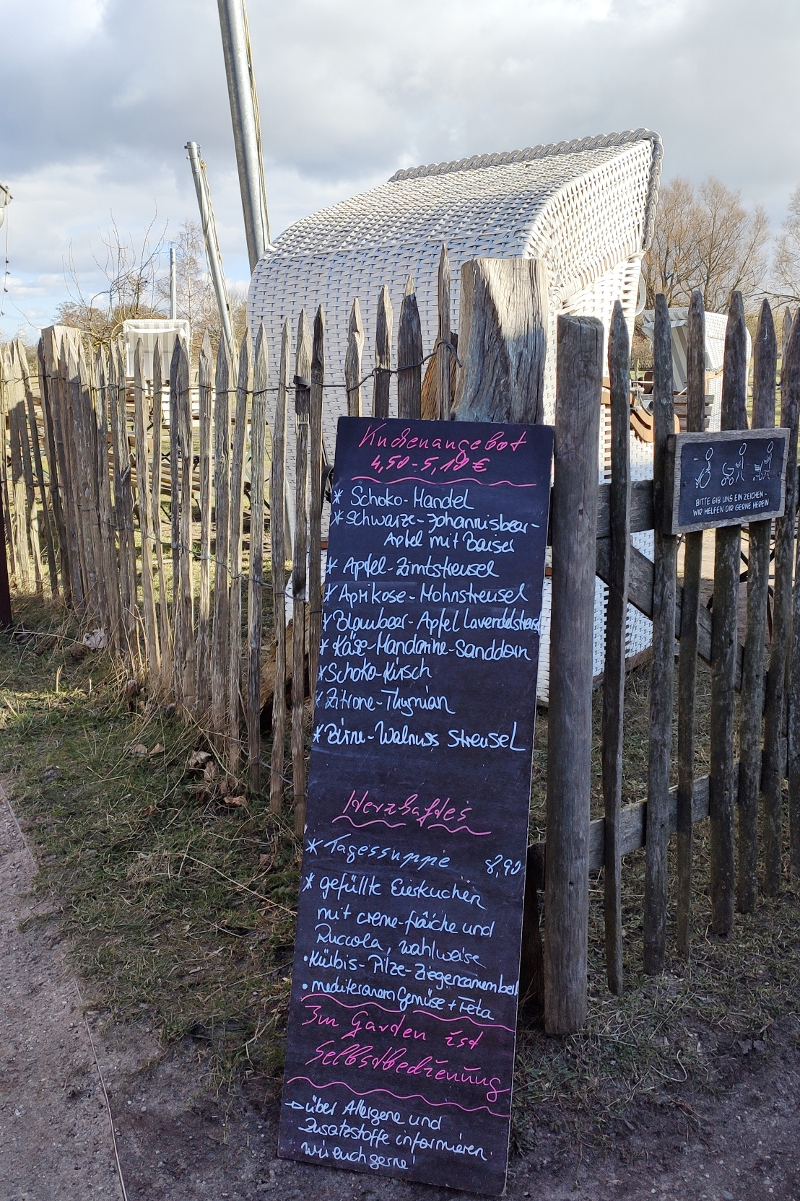 Kuchenangebot
4,50-5,10€
* Schoko-Mandel
* schwarze-Johannisbeer-
Apfel mit Baiser
* Apfel-Zimtstreusel
* Aprikose-Mohnstreusel
* Blaubeer-Apfel Lavendelstreusel
* Käse-Mandarine-Sanddorn
* Schoko-Kirsch
* Zitrone-Thymian
* Birne-Walnuss Streusel
Herzhaftes
* Tagessuppe 8,90
* gefüllte Eierkuchen
mit creme-fraîche und
Ruccola, wahlweise
• Kürbis-Pilze-Ziegencamembert
• mediteranem Gemüse + Feta
Im Garden ist
Selbstbedienung
→ über Allergene und
Zusatzstoffe informieren
wir euch gerne!
BITTE GIB UNS EIN ZEICHEN -
WIR HELFEN DIR GERNE HEREIN